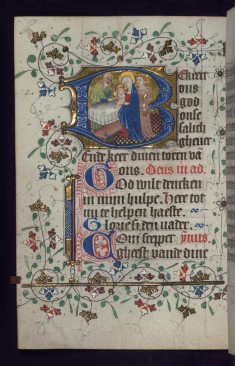 Bekeert
ons
god
onse
salich
gheuer
Ende keer dinen toern va
ons. Deus in ad.
God wilt dencken
in mijn hulpe. Here tot
mi te helpen haeste.
Glorie si den vader.
Com scepper ymnus.
gheest vande dine